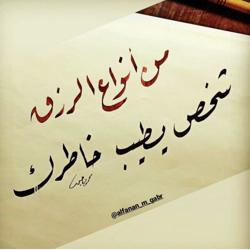 من أنواع الرزق
شخص يطيب خاطرك
@alfanan_m_qabr